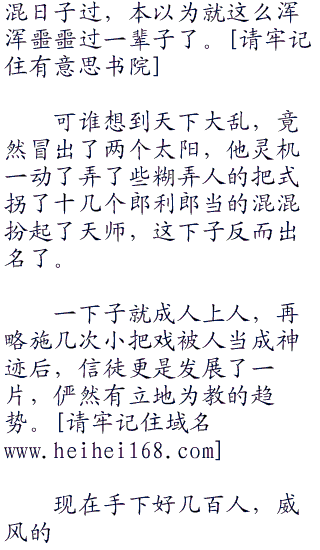 混日子过，本以为就这么浑
浑噩噩过一辈子了。[请牢记
住有意思书院]
可谁想到天下大乱，竟
然冒出了两个太阳，他灵机
一动了弄了些糊弄人的把式
拐了十几个郎利郎当的混混
扮起了天师，这下子反而出
名了。
一下子就成人上人，再
略施几次小把戏被人当成神
迹后，信徒更是发展了一
片，俨然有立地为教的趋
势。[请牢记住域名
www.heihei168.com]
现在手下好几百人，威
风的